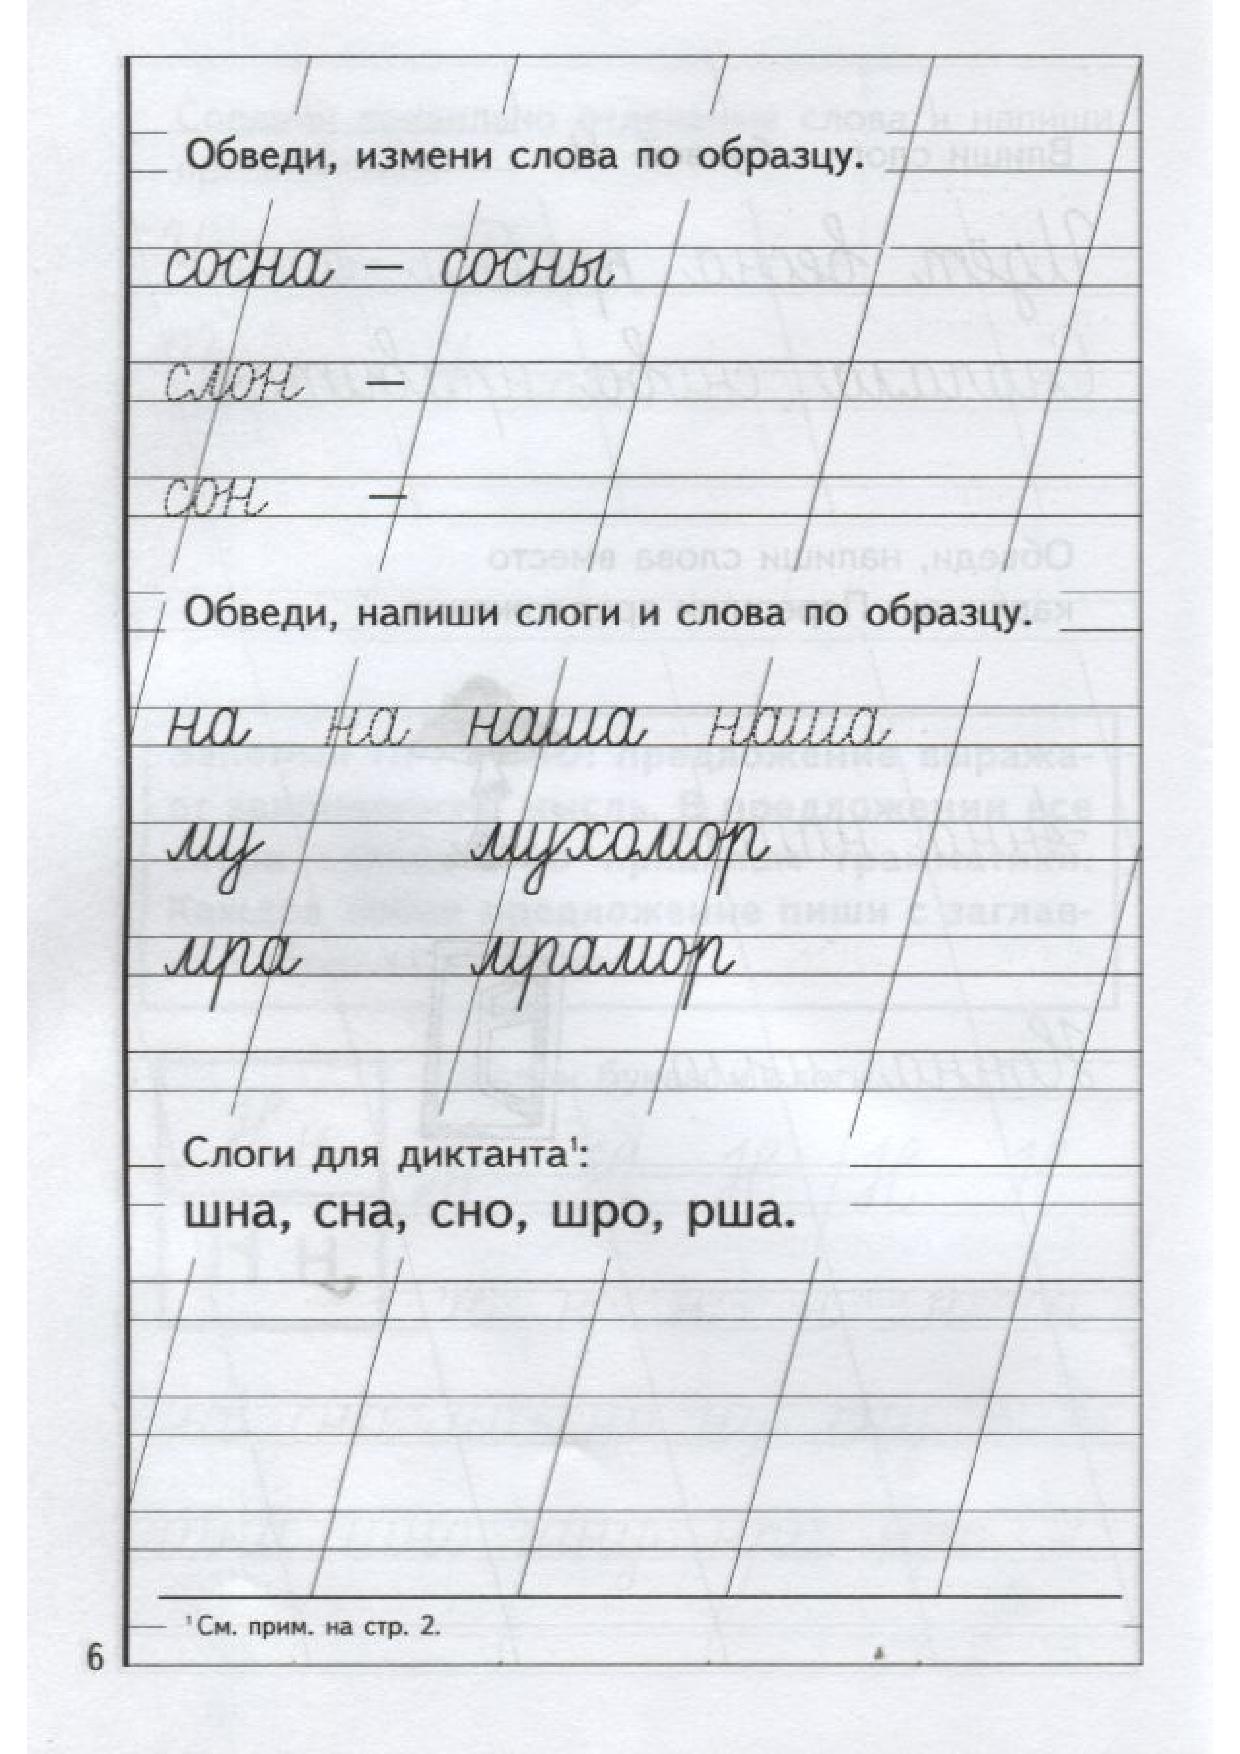 Обведи, измени слова по образцу.
сосна – сосны
слон –
сон –
Обведи, напиши слоги и слова по образцу.
на на наша наша
му мухомор
мра мрамор
Слоги для диктанта¹:
шна, сна, сно, шро, рша.
¹ См. прим. на стр. 2.
6